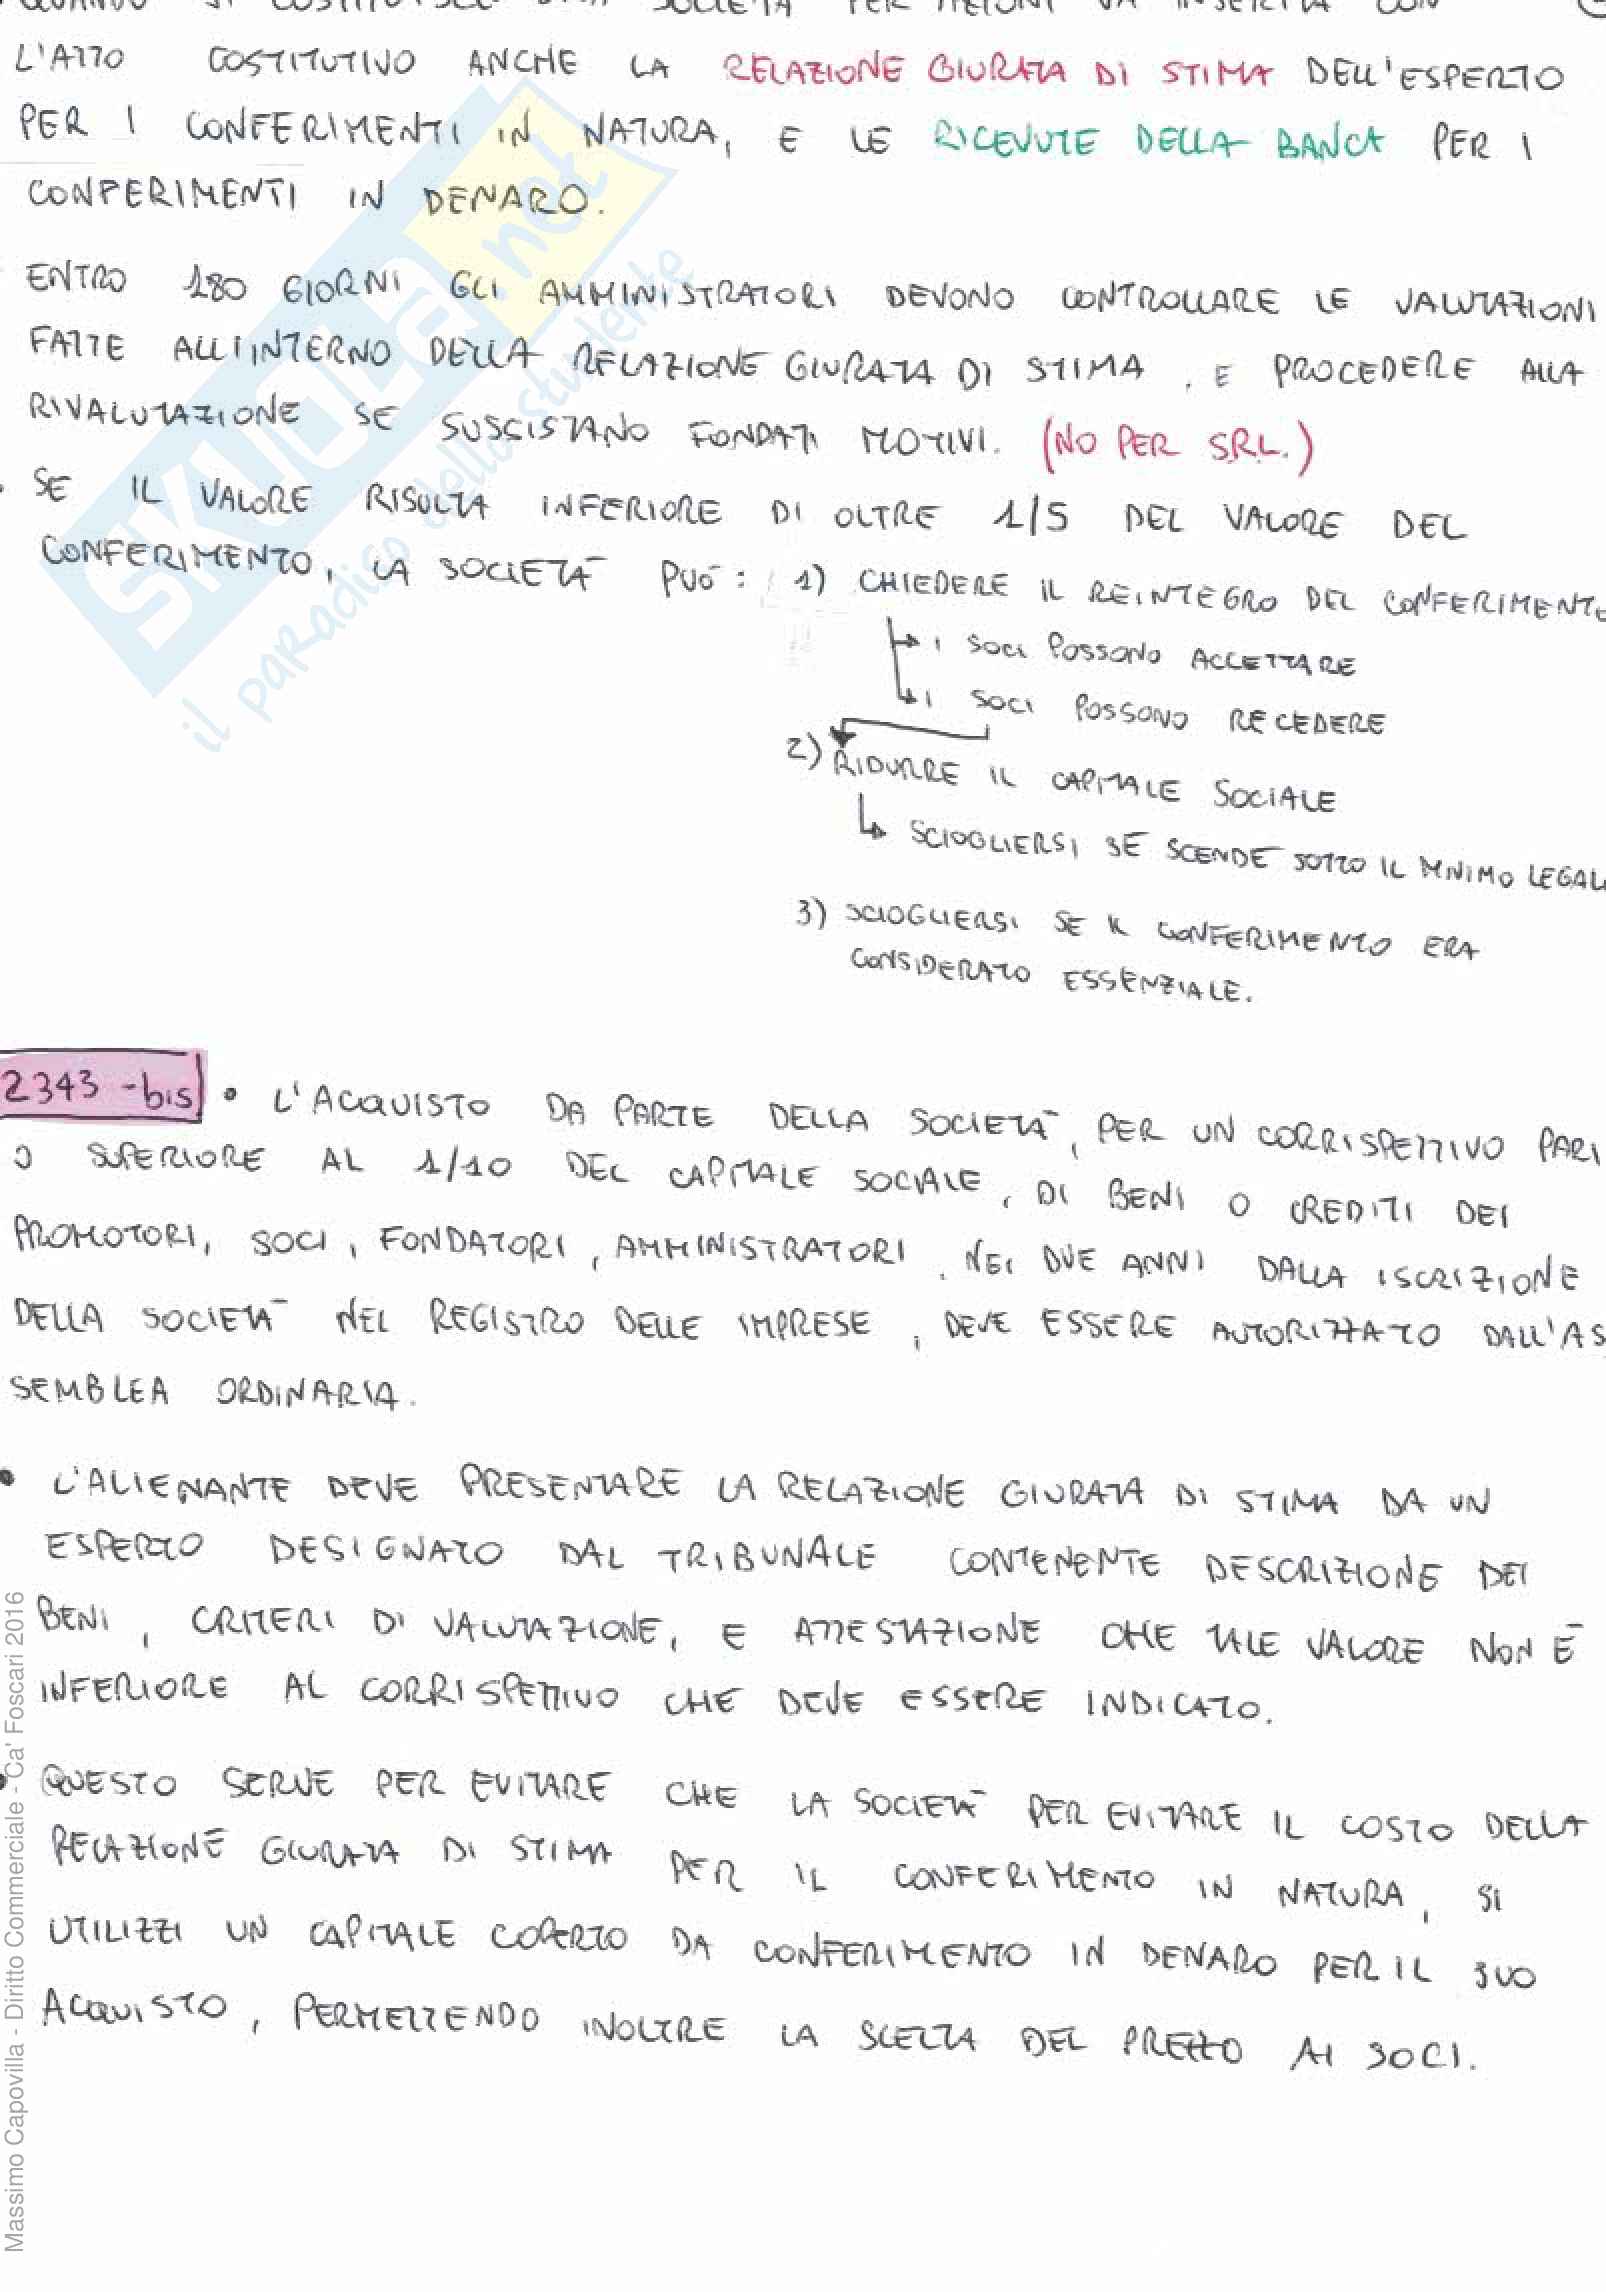 QUANDO SI COSTITUISCE UNA SOCIETÀ PER AZIONI VA INSERITA CON
L'ATTO COSTITUTIVO ANCHE LA RELAZIONE GIURATA DI STIMA DELL'ESPERTO
PER I CONFERIMENTI IN NATURA, E LE RICEVUTE DELLA BANCA PER I
CONFERIMENTI IN DENARO.
ENTRO 180 GIORNI GLI AMMINISTRATORI DEVONO CONTROLLARE LE VALUTAZIONI
FATTE ALL'INTERNO DELLA RELAZIONE GIURATA DI STIMA, E PROCEDERE ALLA
RIVALUTAZIONE SE SUSSISTANO FONDATI MOTIVI. (NO PER S.R.L.)
• SE IL VALORE RISULTA INFERIORE DI OLTRE 1/5 DEL VALORE DEL
CONFERIMENTO, LA SOCIETÀ PUÒ: 1) CHIEDERE IL REINTEGRO DEL CONFERIMENTO
↳ I SOCI POSSONO ACCETTARE
↳ I SOCI POSSONO RECEDERE
2) RIDURRE IL CAPITALE SOCIALE
↳ SCIOGLIERSI SE SCENDE SOTTO IL MINIMO LEGAL
3) SCIOGLIERSI SE IL CONFERIMENTO ERA
CONSIDERATO ESSENZIALE.
2343-bis • L'ACQUISTO DA PARTE DELLA SOCIETÀ, PER UN CORRISPETTIVO PARI
O SUPERIORE AL 1/10 DEL CAPITALE SOCIALE, DI BENI O CREDITI DEI
PROMOTORI, SOCI, FONDATORI, AMMINISTRATORI, NEI DUE ANNI DALLA ISCRIZIONE
DELLA SOCIETÀ NEL REGISTRO DELLE IMPRESE, DEVE ESSERE AUTORIZZATO DALL'AS
SEMBLEA ORDINARIA.
• L'ALIENANTE DEVE PRESENTARE LA RELAZIONE GIURATA DI STIMA DA UN
ESPERTO DESIGNATO DAL TRIBUNALE CONTENENTE DESCRIZIONE DEI
BENI, CRITERI DI VALUTAZIONE, E ATTESTAZIONE CHE TALE VALORE NON È
INFERIORE AL CORRISPETTIVO CHE DEVE ESSERE INDICATO.
• QUESTO SERVE PER EVITARE CHE LA SOCIETÀ PER EVITARE IL COSTO DELLA
RELAZIONE GIURATA DI STIMA PER IL CONFERIMENTO IN NATURA, SI
UTILIZZI UN CAPITALE COPERTO DA CONFERIMENTO IN DENARO PER IL SUO
ACQUISTO, PERMETTENDO INOLTRE LA SCELTA DEL PREZZO AI SOCI.
SKUOLA.net
il paradiso dello studente
Massimo Capovilla - Diritto Commerciale - Ca' Foscari 2016